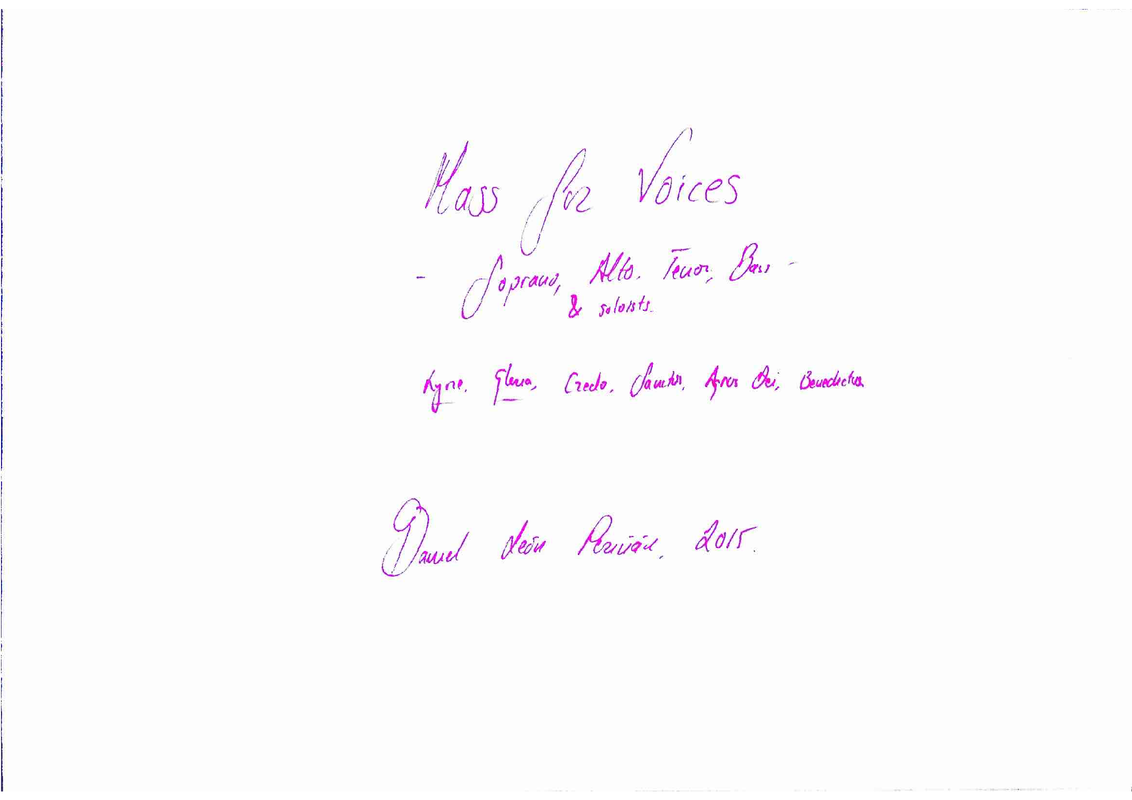 Mass for Voices
- Soprano, Alto. Tenor, Bass -
& soloists.
Kyrie. Gloria, Credo, Sanctus, Agnus Dei, Benedictus
Daniel León Perinán, 2015.